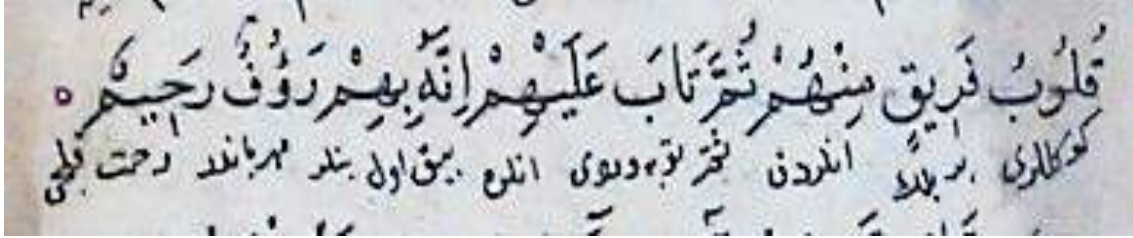 قُلُوبُ فَرِيقٍ مِنْهُمْ ثُمَّ تَابَ عَلَيْهِمْ اِنَّهُ بِهِمْ رَؤُفٌ رَحِيمٌ ه
كوكللرى بر انلردن توبه ويردى انلره بيق اول بنلر مهرباندر رحمت قلجى